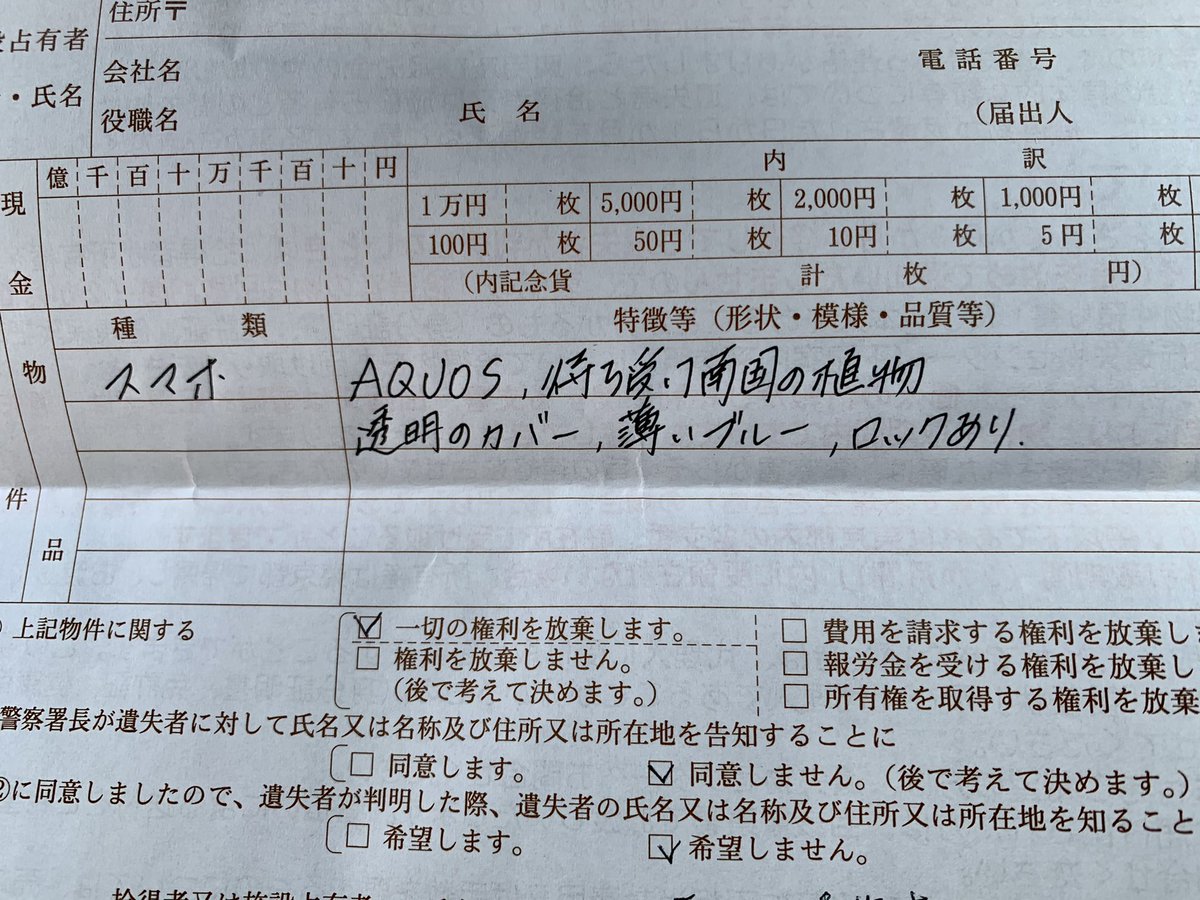 住所〒
占有者
会社名 電話番号
・氏名
役職名 氏名 (届出人
現金 億千百十万千百十円 内訳
1万円 枚 5,000円 枚 2,000円 枚 1,000円 枚
100円 枚 50円 枚 10円 枚 5円 枚
(内記念貨 計 枚 円)
物件 種類 特徴等(形状・模様・品質等)
スマホ AQUOS, 待ち受け南国の植物
透明のカバー, 薄いブルー, ロックあり.
品
上記物件に関する
☑ 一切の権利を放棄します。
□ 権利を放棄しません。
(後で考えて決めます。)
□ 費用を請求する権利を放棄し
□ 報労金を受ける権利を放棄し
□ 所有権を取得する権利を放棄
警察署長が遺失者に対して氏名又は名称及び住所又は所在地を告知することに
□ 同意します。 ☑ 同意しません。(後で考えて決めます。)
②に同意しましたので、遺失者が判明した際、遺失者の氏名又は名称及び住所又は所在地を知ること
□ 希望します。 ☑ 希望しません。